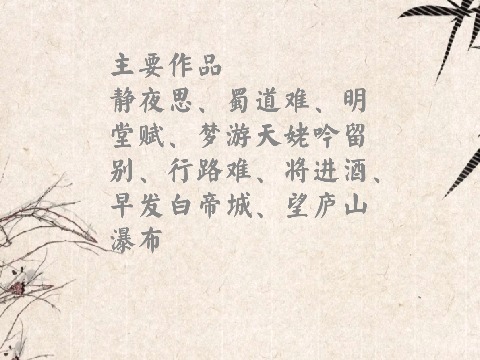 主要作品
静夜思、蜀道难、明
堂赋、梦游天姥吟留
别、行路难、将进酒、
早发白帝城、望庐山
瀑布